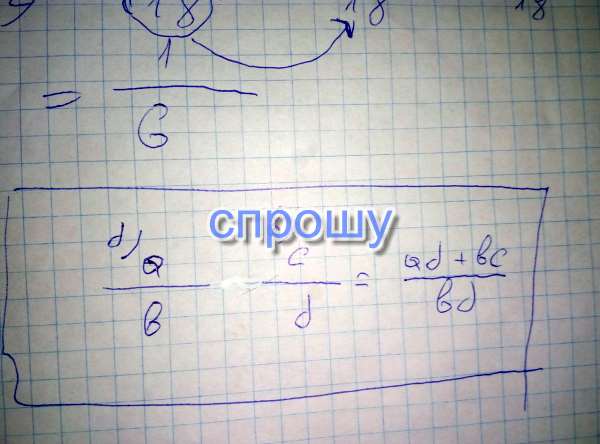 18 18 18
= 1/6
спрошу
d) a/b c/d = ad + bc / bd